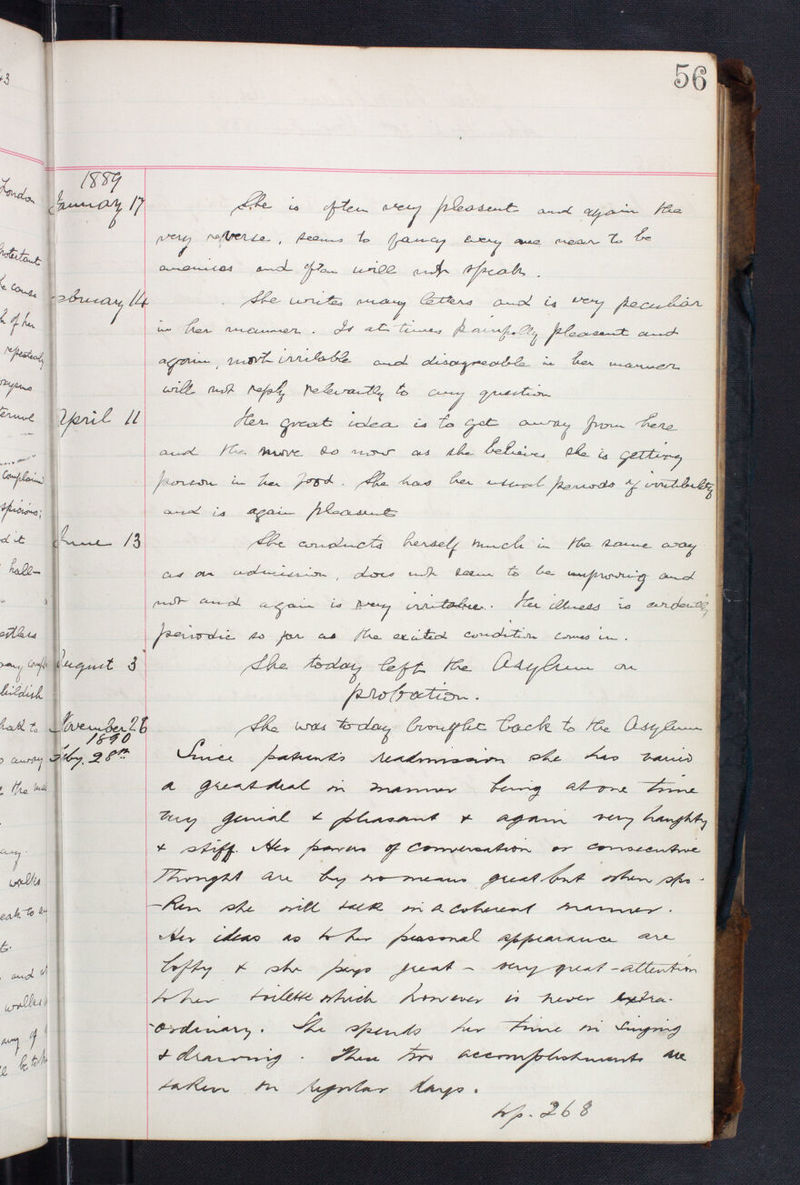 56
1889
January 17 She is often very pleasant and again the
very reverse, seems to fancy every one near to be
enemies and often will not speak.
February 14 She writes many letters and is very peculiar
in her manner. Is at times painfully pleasant and
again, most irritable and disagreeable in her manner
will not reply relevantly to any question
April 11 Her great idea is to get away from here
and the more so now as she believes she is getting
poison in her food. She has her usual periods of irritability
and is again pleasant
June 13 She conducts herself much in the same way
as on admission, does not seem to be improving and
now and again is very irritable. Her illness is evidently
periodic so far as the excited condition comes in.
August 3 She today left the Asylum on
probation.
November 26 She was today brought back to the Asylum
1890
Feby. 28th Since patient's readmission she has varied
a great deal in manner being at one time
very genial & pleasant & again very haughty
& stiff. Her powers of conversation or consecutive
thought are by no means great but when spo-
-ken she will talk in a coherent manner.
Her ideas as to her personal appearance are
lofty & she pays great - very great - attention
to her toilette which however is never extra-
-ordinary. She spends her time in singing
& drawing. These two accomplishments are
taken on regular days.
to p. 268